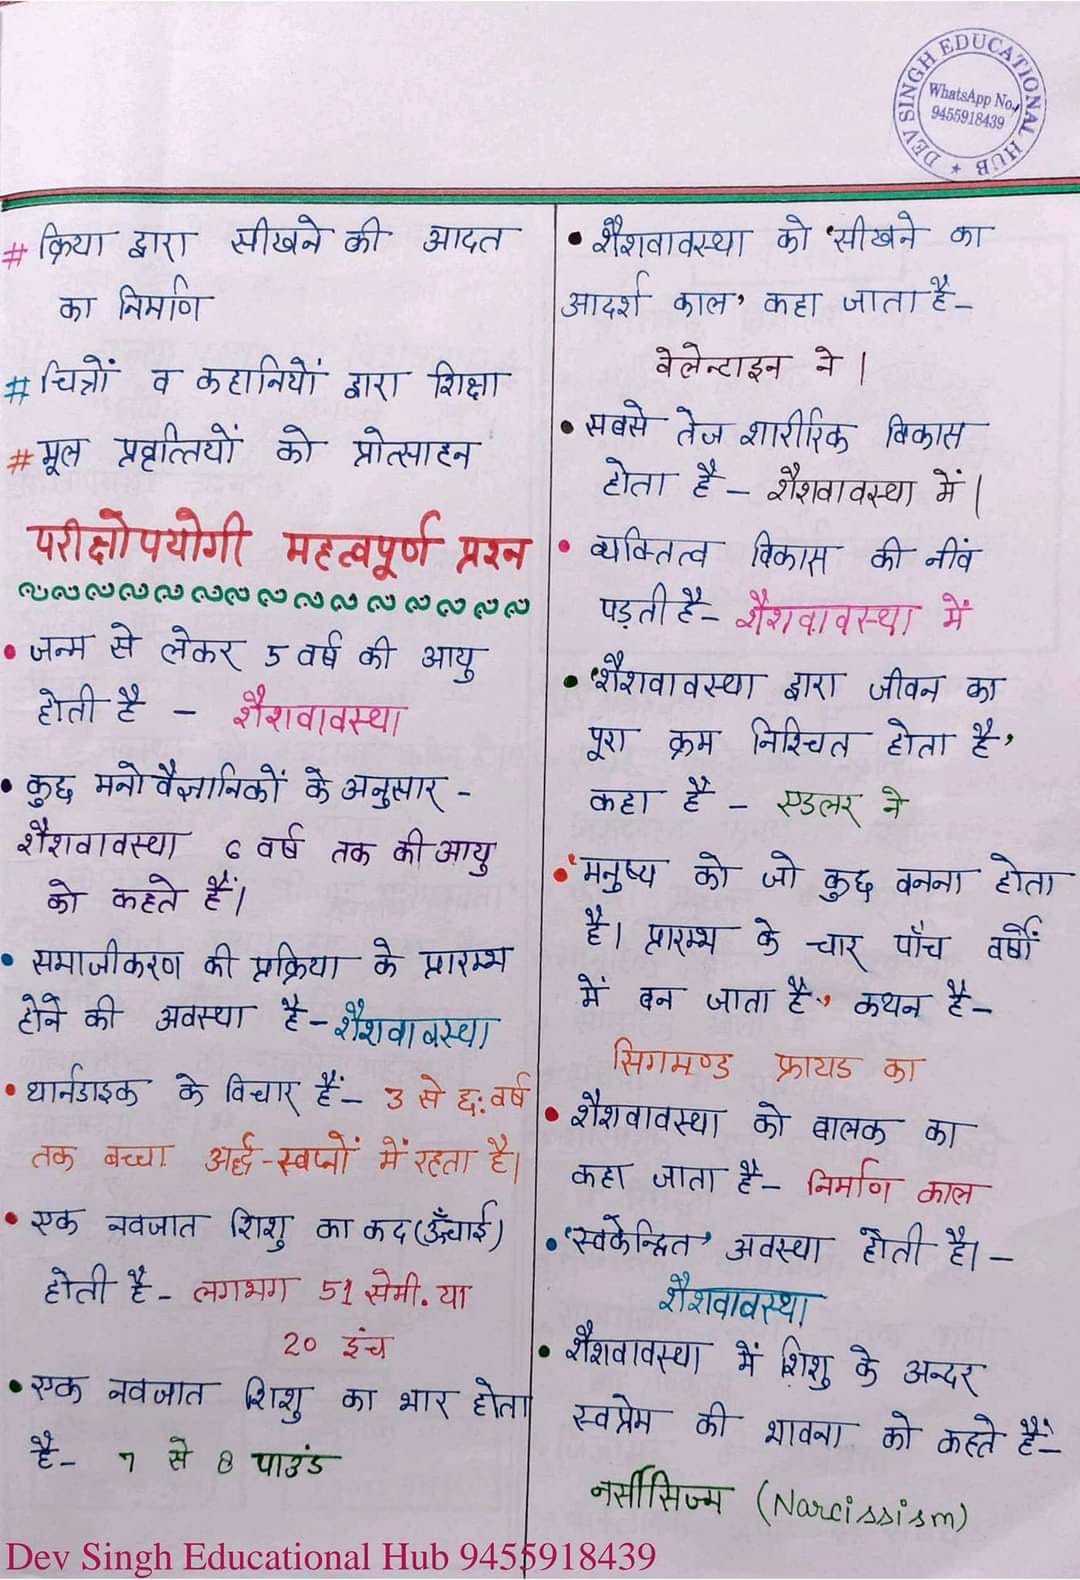 DEV SINGH EDUCATIONAL HUB
WhatsApp No.
9455918439
# क्रिया द्वारा सीखने की आदत
का निर्माण
# चित्रों व कहानियों द्वारा शिक्षा
# मूल प्रवृत्तियों को प्रोत्साहन
परीक्षोपयोगी महत्वपूर्ण प्रश्न
• जन्म से लेकर 5 वर्ष की आयु
होती है - शैशवावस्था
• कुछ मनोवैज्ञानिकों के अनुसार -
शैशवावस्था 6 वर्ष तक की आयु
को कहते हैं।
• समाजीकरण की प्रक्रिया के प्रारम्भ
होने की अवस्था है - शैशवावस्था
• थार्नडाइक के विचार हैं - 3 से छ: वर्ष
तक बच्चा अर्द्ध-स्वप्नों में रहता है।
• एक नवजात शिशु का कद (ऊँचाई)
होती है - लगभग 51 सेमी. या
20 इंच
• एक नवजात शिशु का भार होता
है - 7 से 8 पाउंड
• शैशवावस्था को 'सीखने का
आदर्श काल' कहा जाता है -
वेलेन्टाइन ने |
• सबसे तेज शारीरिक विकास
होता है - शैशवावस्था में |
• व्यक्तित्व विकास की नींव
पड़ती है - शैशवावस्था में
• 'शैशवावस्था द्वारा जीवन का
पूरा क्रम निश्चित होता है'
कहा है - एडलर ने
• 'मनुष्य को जो कुछ बनना होता
है। प्रारम्भ के चार पाँच वर्षों
में बन जाता है', कथन है -
सिगमण्ड फ्रायड का
• शैशवावस्था को बालक का
कहा जाता है - निर्माण काल
• 'स्वकेन्द्रित' अवस्था होती है। -
शैशवावस्था
• शैशवावस्था में शिशु के अन्दर
स्वप्रेम की भावना को कहते हैं -
नर्सीसिज्म (Narcissism)
Dev Singh Educational Hub 9455918439